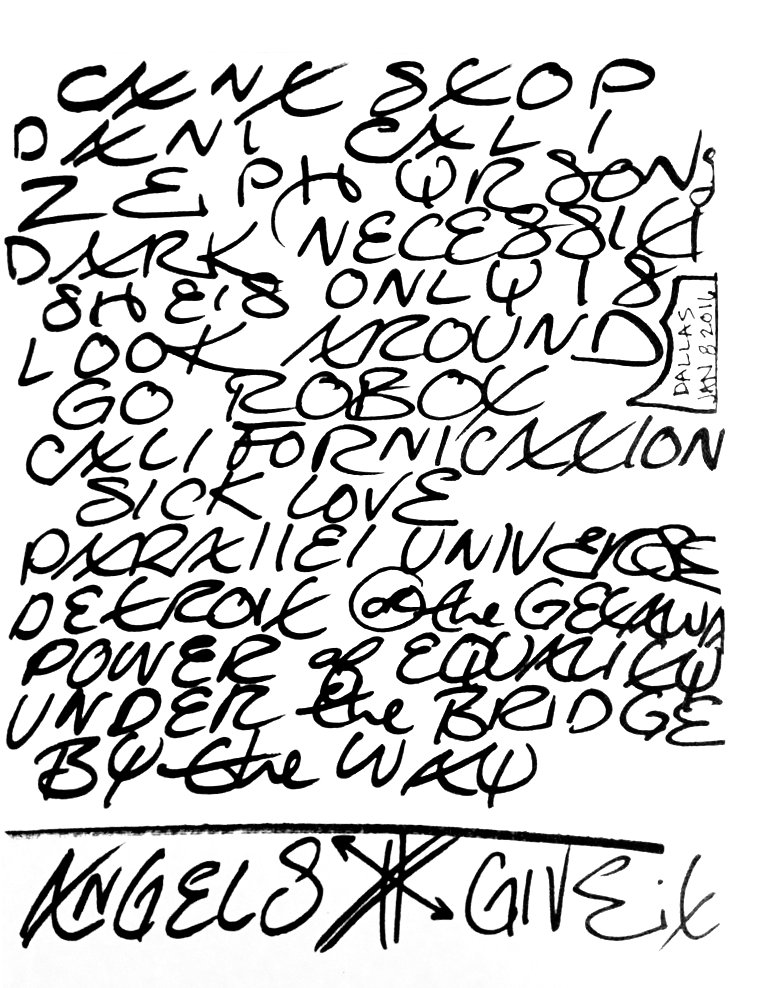 CANT STOP
DANI CALI
ZEPHYR SONg
DARK NECESSITI
SHE'S ONLY 18
LOOK AROUND
DALLAS
JAN 8 2016
GO ROBOT
CALIFORNICATION
SICK LOVE
PARALLEL UNIVERSE
DETROIT or the GETAWA
POWER of EQUALITY
UNDER the BRIDGE
BY the WAY
ANGELS GIVE it